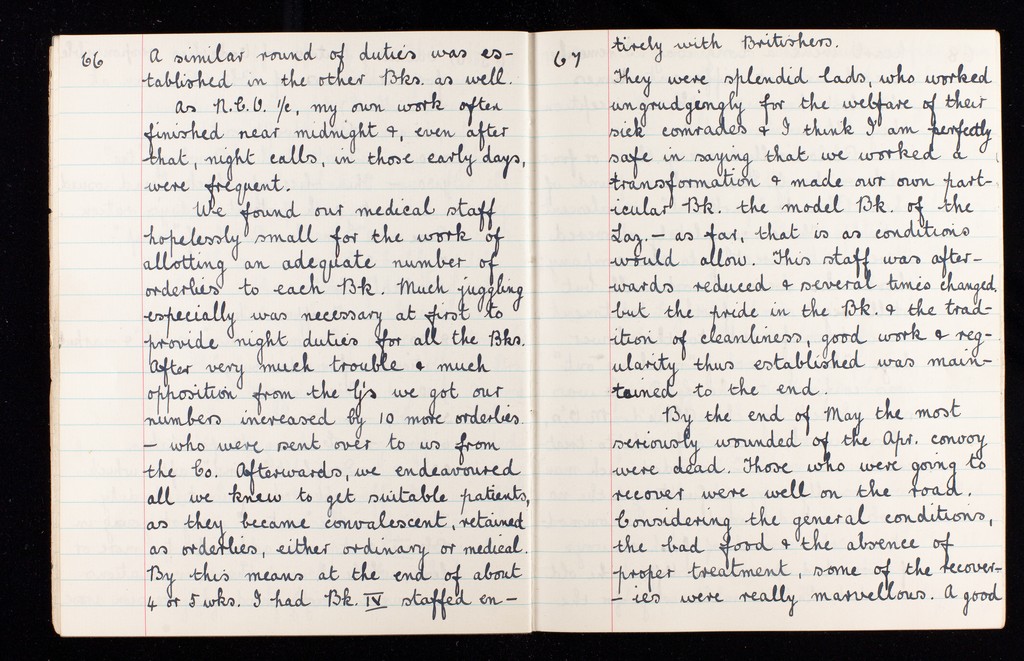 66
A similar round of duties was es-
tablished in the other Bks. as well.
As N.C.O. i/c, my own work often
finished near midnight &, even after
that, night calls, in those early days,
were frequent.
We found our medical staff
hopelessly small for the work of
allotting an adequate number of
orderlies to each Bk. Much juggling
especially was necessary at first to
provide night duties for all the Bks.
After very much trouble & much
opposition from the Gj's we got our
numbers increased by 10 more orderlies.
- who were sent over to us from
the Co. Afterwards, we endeavoured
all we knew to get suitable patients,
as they became convalescent, retained
as orderlies, either ordinary or medical.
By this means at the end of about
4 or 5 wks. I had Bk. IV staffed en-
67
tirely with Britishers.
They were splendid lads, who worked
ungrudgingly for the welfare of their
sick comrades & I think I am perfectly
safe in saying that we worked a
transformation & made our own part-
icular Bk. the model Bk. of the
Laz. - as far, that is as conditions
would allow. This staff was after-
wards reduced & several times changed,
but the pride in the Bk. & the trad-
ition of cleanliness, good work & reg-
ularity thus established was main-
tained to the end.
By the end of May the most
seriously wounded of the Apr. convoy
were dead. Those who were going to
recover were well on the road.
Considering the general conditions,
the bad food & the absence of
proper treatment, some of the recover-
- ies were really marvellous. A good